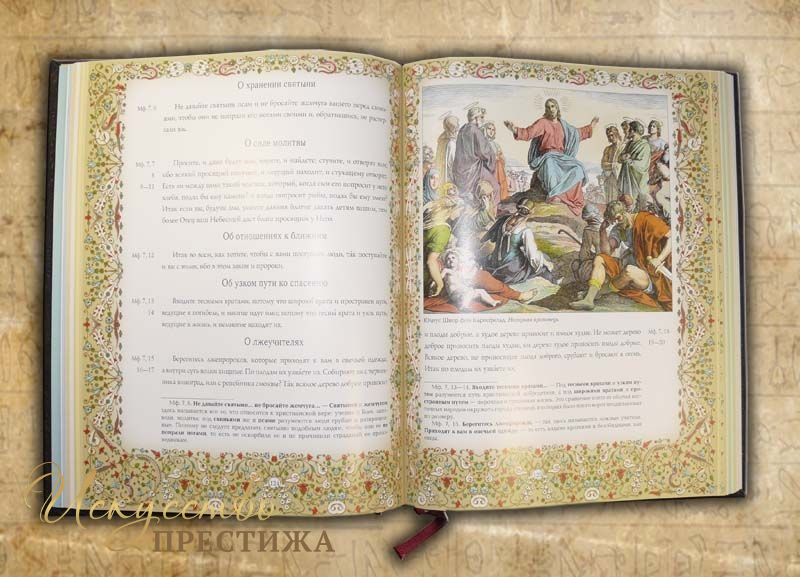 О хранении святыни
Мф. 7, 6 Не давайте святыни псам и не бросайте жемчуга вашего перед свиньями,
чтобы они не попрали его ногами своими и, обратившись, не растерзали
вас.
О силе молитвы
Мф. 7, 7 Просите, и дано будет вам; ищите, и найдете; стучите, и отворят вам;
8 ибо всякий просящий получает, и ищущий находит, и стучащему отворят.
9–11 Есть ли между вами такой человек, который, когда сын его попросит у него
хлеба, подал бы ему камень? и когда попросит рыбы, подал бы ему змею?
Итак если вы, будучи злы, умеете даяния благие давать детям вашим, тем
более Отец ваш Небесный даст блага просящим у Него.
Об отношениях к ближним
Мф. 7, 12 Итак во всем, как хотите, чтобы с вами поступали люди, так поступайте
и вы с ними, ибо в этом закон и пророки.
Об узком пути ко спасению
Мф. 7, 13 Входите тесными вратами, потому что широки врата и пространен путь,
14 ведущие в погибель, и многие идут ими; потому что тесны врата и узок путь,
ведущие в жизнь, и немногие находят их.
О лжеучителях
Мф. 7, 15 Берегитесь лжепророков, которые приходят к вам в овечьей одежде,
16–17 а внутри суть волки хищные. По плодам их узнаете их. Собирают ли с терновника
виноград, или с репейника смоквы? Так всякое дерево доброе приносит
Мф. 7, 6. Не давайте святыни... не бросайте жемчуга... — Святыней и жемчугом
здесь называется все то, что относится к христианской вере:
свиньями же и псами разумеются люди
Поэтому не следует предлагать святыню подобным людям, чтобы они не
попрали ногами, то есть не оскорбили ее и не причинили страданий
Юлиус Шнорр фон Карольсфельд. Нагорная проповедь
и плоды добрые, а худое дерево приносит и плоды худые. Не может дерево Мф. 7, 18
доброе приносить плоды худые, ни дерево худое приносить плоды добрые. 19–20
Всякое дерево, не приносящее плода доброго, срубают и бросают в огонь.
Итак по плодам их узнаете их.
Мф. 7, 13–14. Входите тесными вратами... — Под тесными вратами и узким путем
разумеется путь христианской добродетели, а под широкими вратами и пространным
путем —
Мф. 7, 15. Берегитесь лжепророков — так здесь называются ложные учителя.
Приходят к вам в овечьей одежде — то есть
Искусство
ПРЕСТИЖА